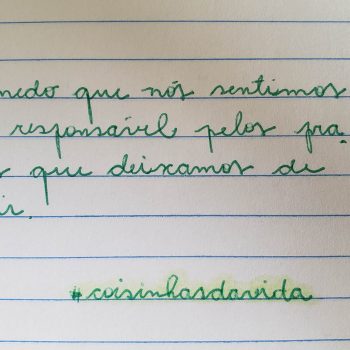 medo que nós sentimos
responsável pelos pra
s que deixamos de
ir.
#coisinhasdavida